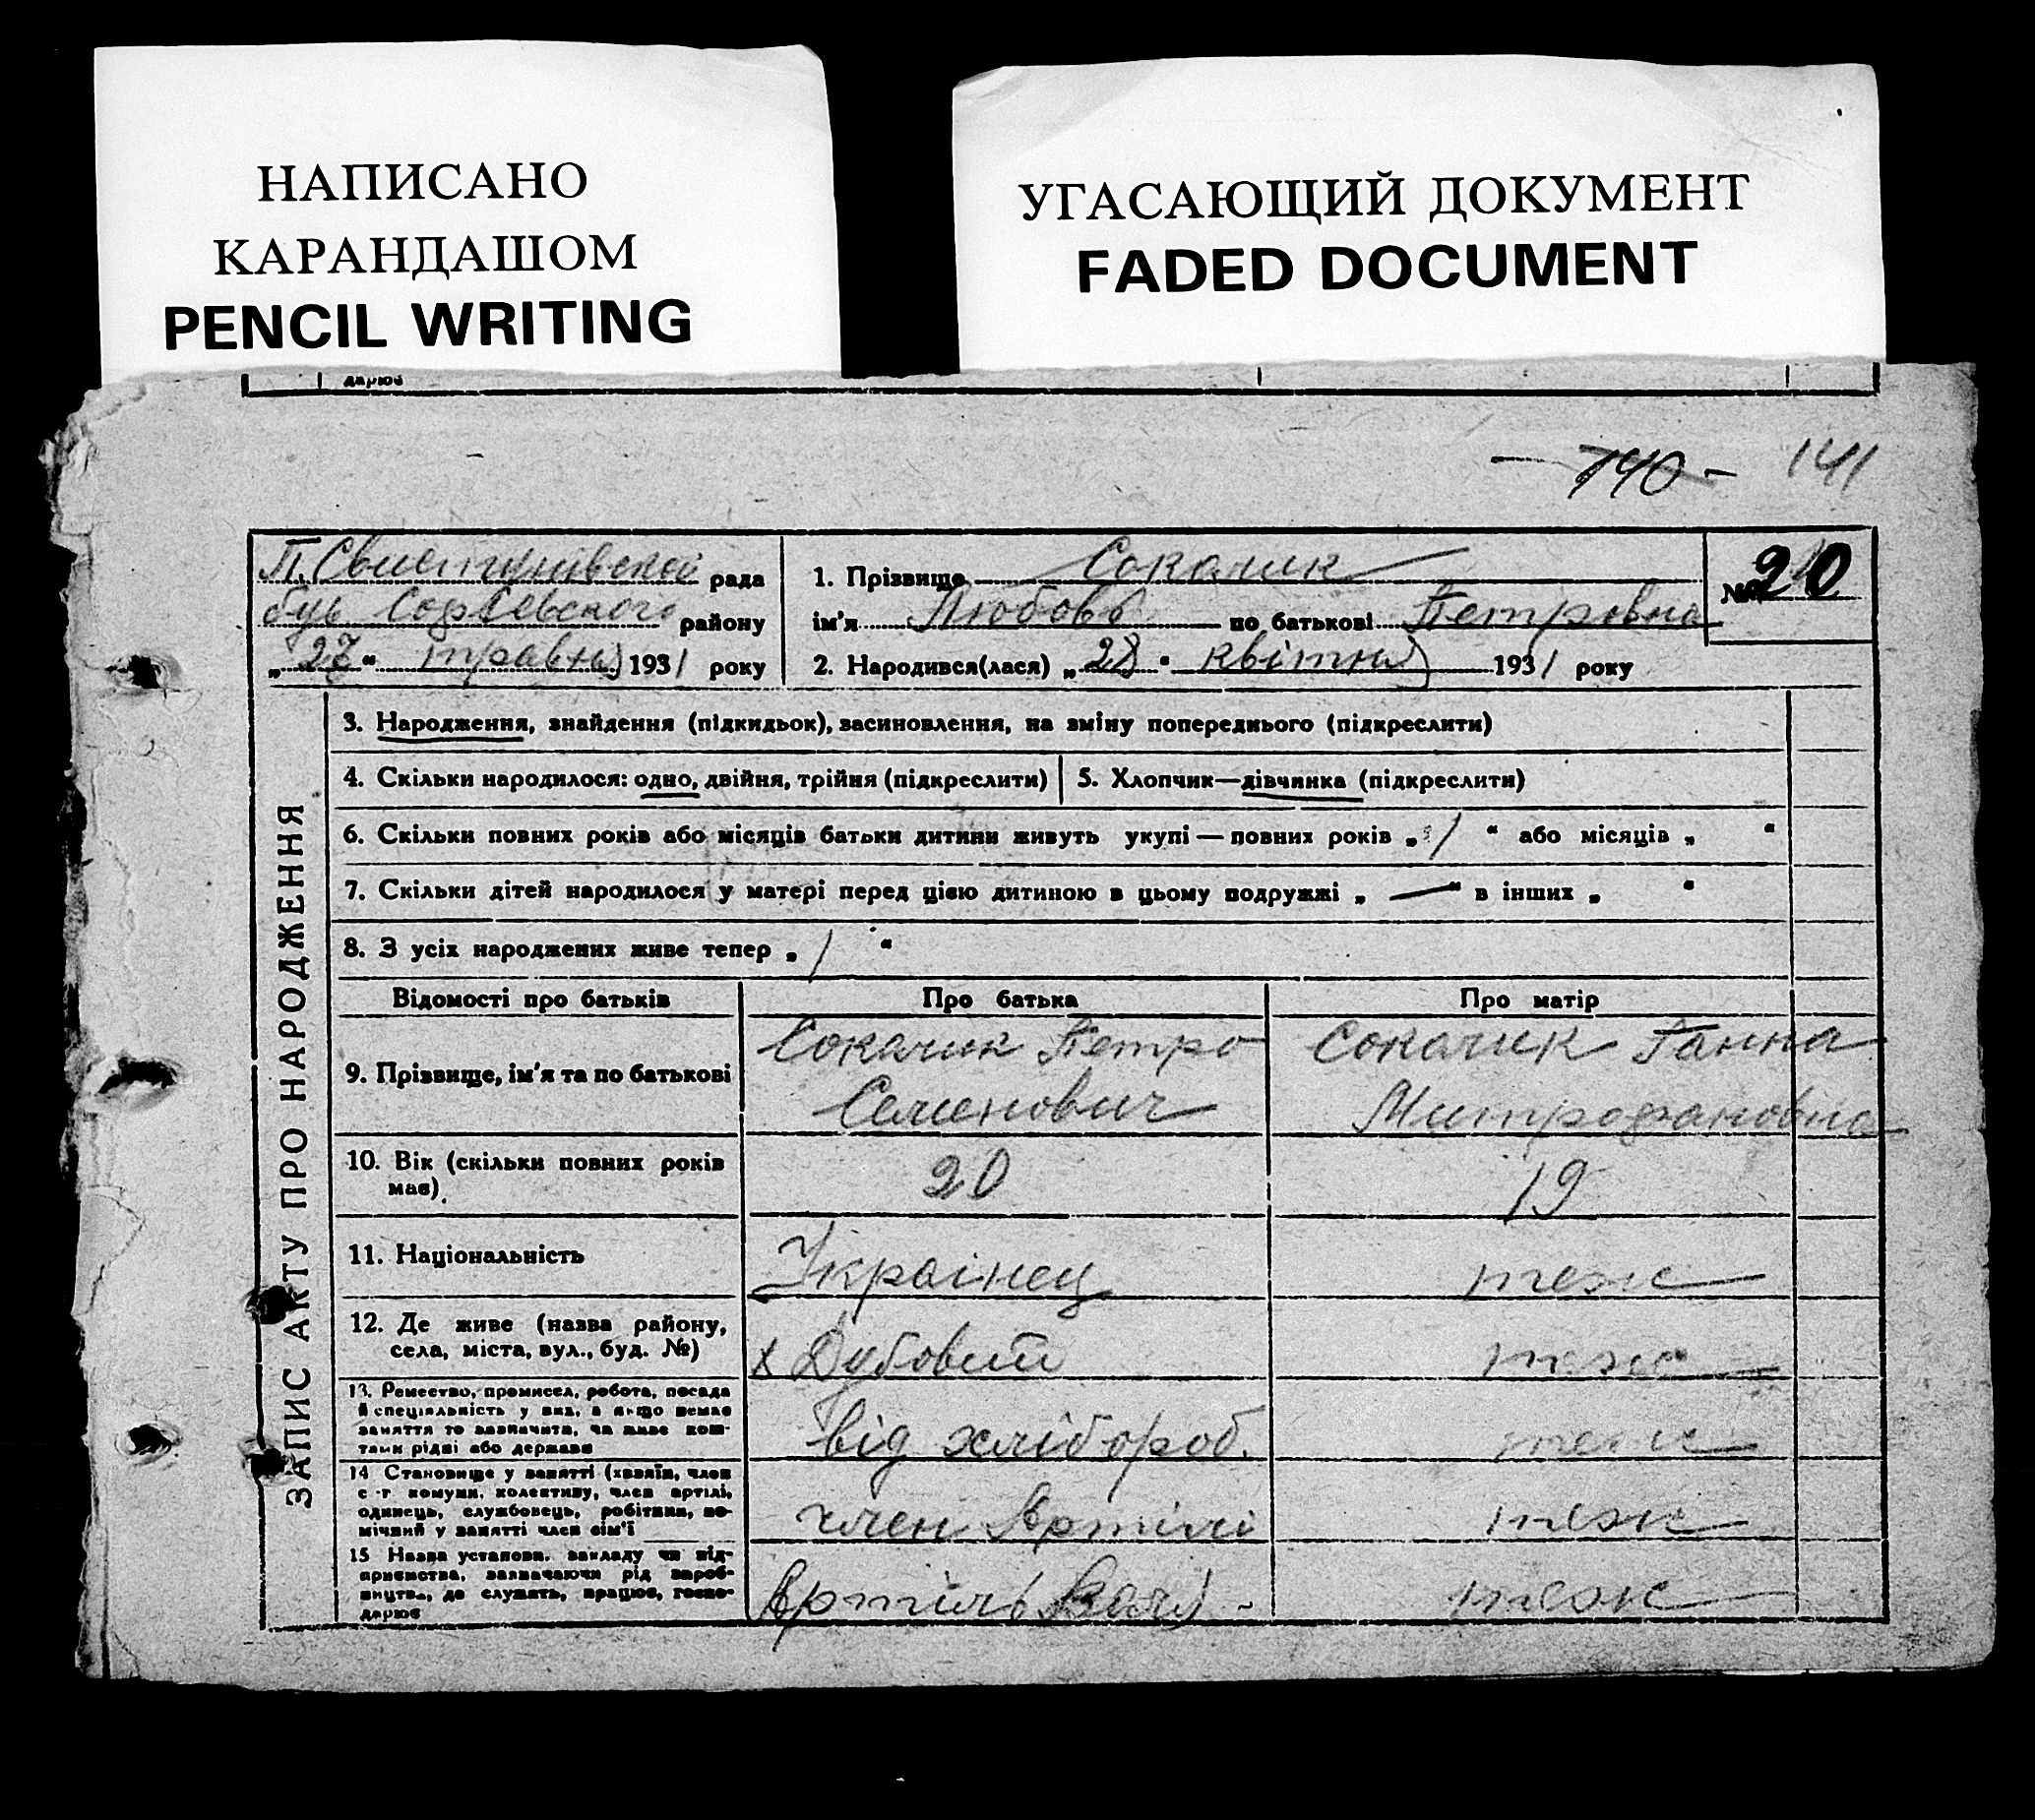 НАПИСАНО
КАРАНДАШОМ
PENCIL WRITING
УГАСАЮЩИЙ ДОКУМЕНТ
FADED DOCUMENT
дарює
— 140 — 141
П. Свистунівської рада
району
„27“ травня 1931 року
1. Прізвище Сокачик
ім'я Любовь по батькові Петровна
2. Народився(лася) „28“ квітня 1931 року
№ 20
ЗАПИС АКТУ ПРО НАРОДЖЕННЯ
3. Народження, знайдення (підкидьок), засиновлення, на зміну попереднього (підкреслити)
4. Скільки народилося: одно, двійня, трійня (підкреслити)
5. Хлопчик—дівчинка (підкреслити)
6. Скільки повних років або місяців батьки дитини живуть укупі — повних років „1“ або місяців „ “
7. Скільки дітей народилося у матері перед цією дитиною в цьому подружжі „—“ в інших „ “
8. З усіх народжених живе тепер „1“
Відомості про батьків Про батька Про матір
9. Прізвище, ім'я та по батькові
Сокачик Петро
Семенович
Сокачик Ганна
Митрофановна
10. Вік (скільки повних років
має)
20 19
11. Національність Українец теж
12. Де живе (назва району,
села, міста, вул., буд. №)
х Дубовий теж
13. Ремество, промисел, робота, посада
й спеціяльність у них, а якщо немає
заняття то зазначити, чи живе кош-
тами рідні або держави
від хлібороб. теж
14 Становище у занятті (хазяїн, член
с.-г. комуни, колективу, член артілі,
одинець, службовець, робітник, по-
мічний у занятті член сім'ї
член Артілі теж
15 Назва установи, закладу чи під-
приємства, зазначаючи рід вироб-
ництва, де служить, працює, госпо-
дарює
Артіль теж